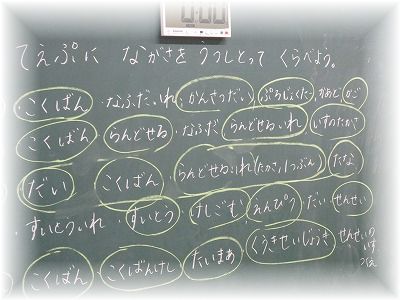 0:00
てえぷに ながさを うつしとって くらべよう。
・こくばん ・なふだいれ ・かんさつだい ・ぷろじぇくたー ・かあど ・かご
こくばん らんどせる ・なふだ らんどせるいれ いすのたかさ
だい こくばん らんどせるいれ(たかさ)1つぶん たな
すいとういれ ・すいとう けしごむ えんぴつ ・だい ・せんせい
こくばん こくばんけし たいまあ くうきせいじょうき せんせいの
つくえ